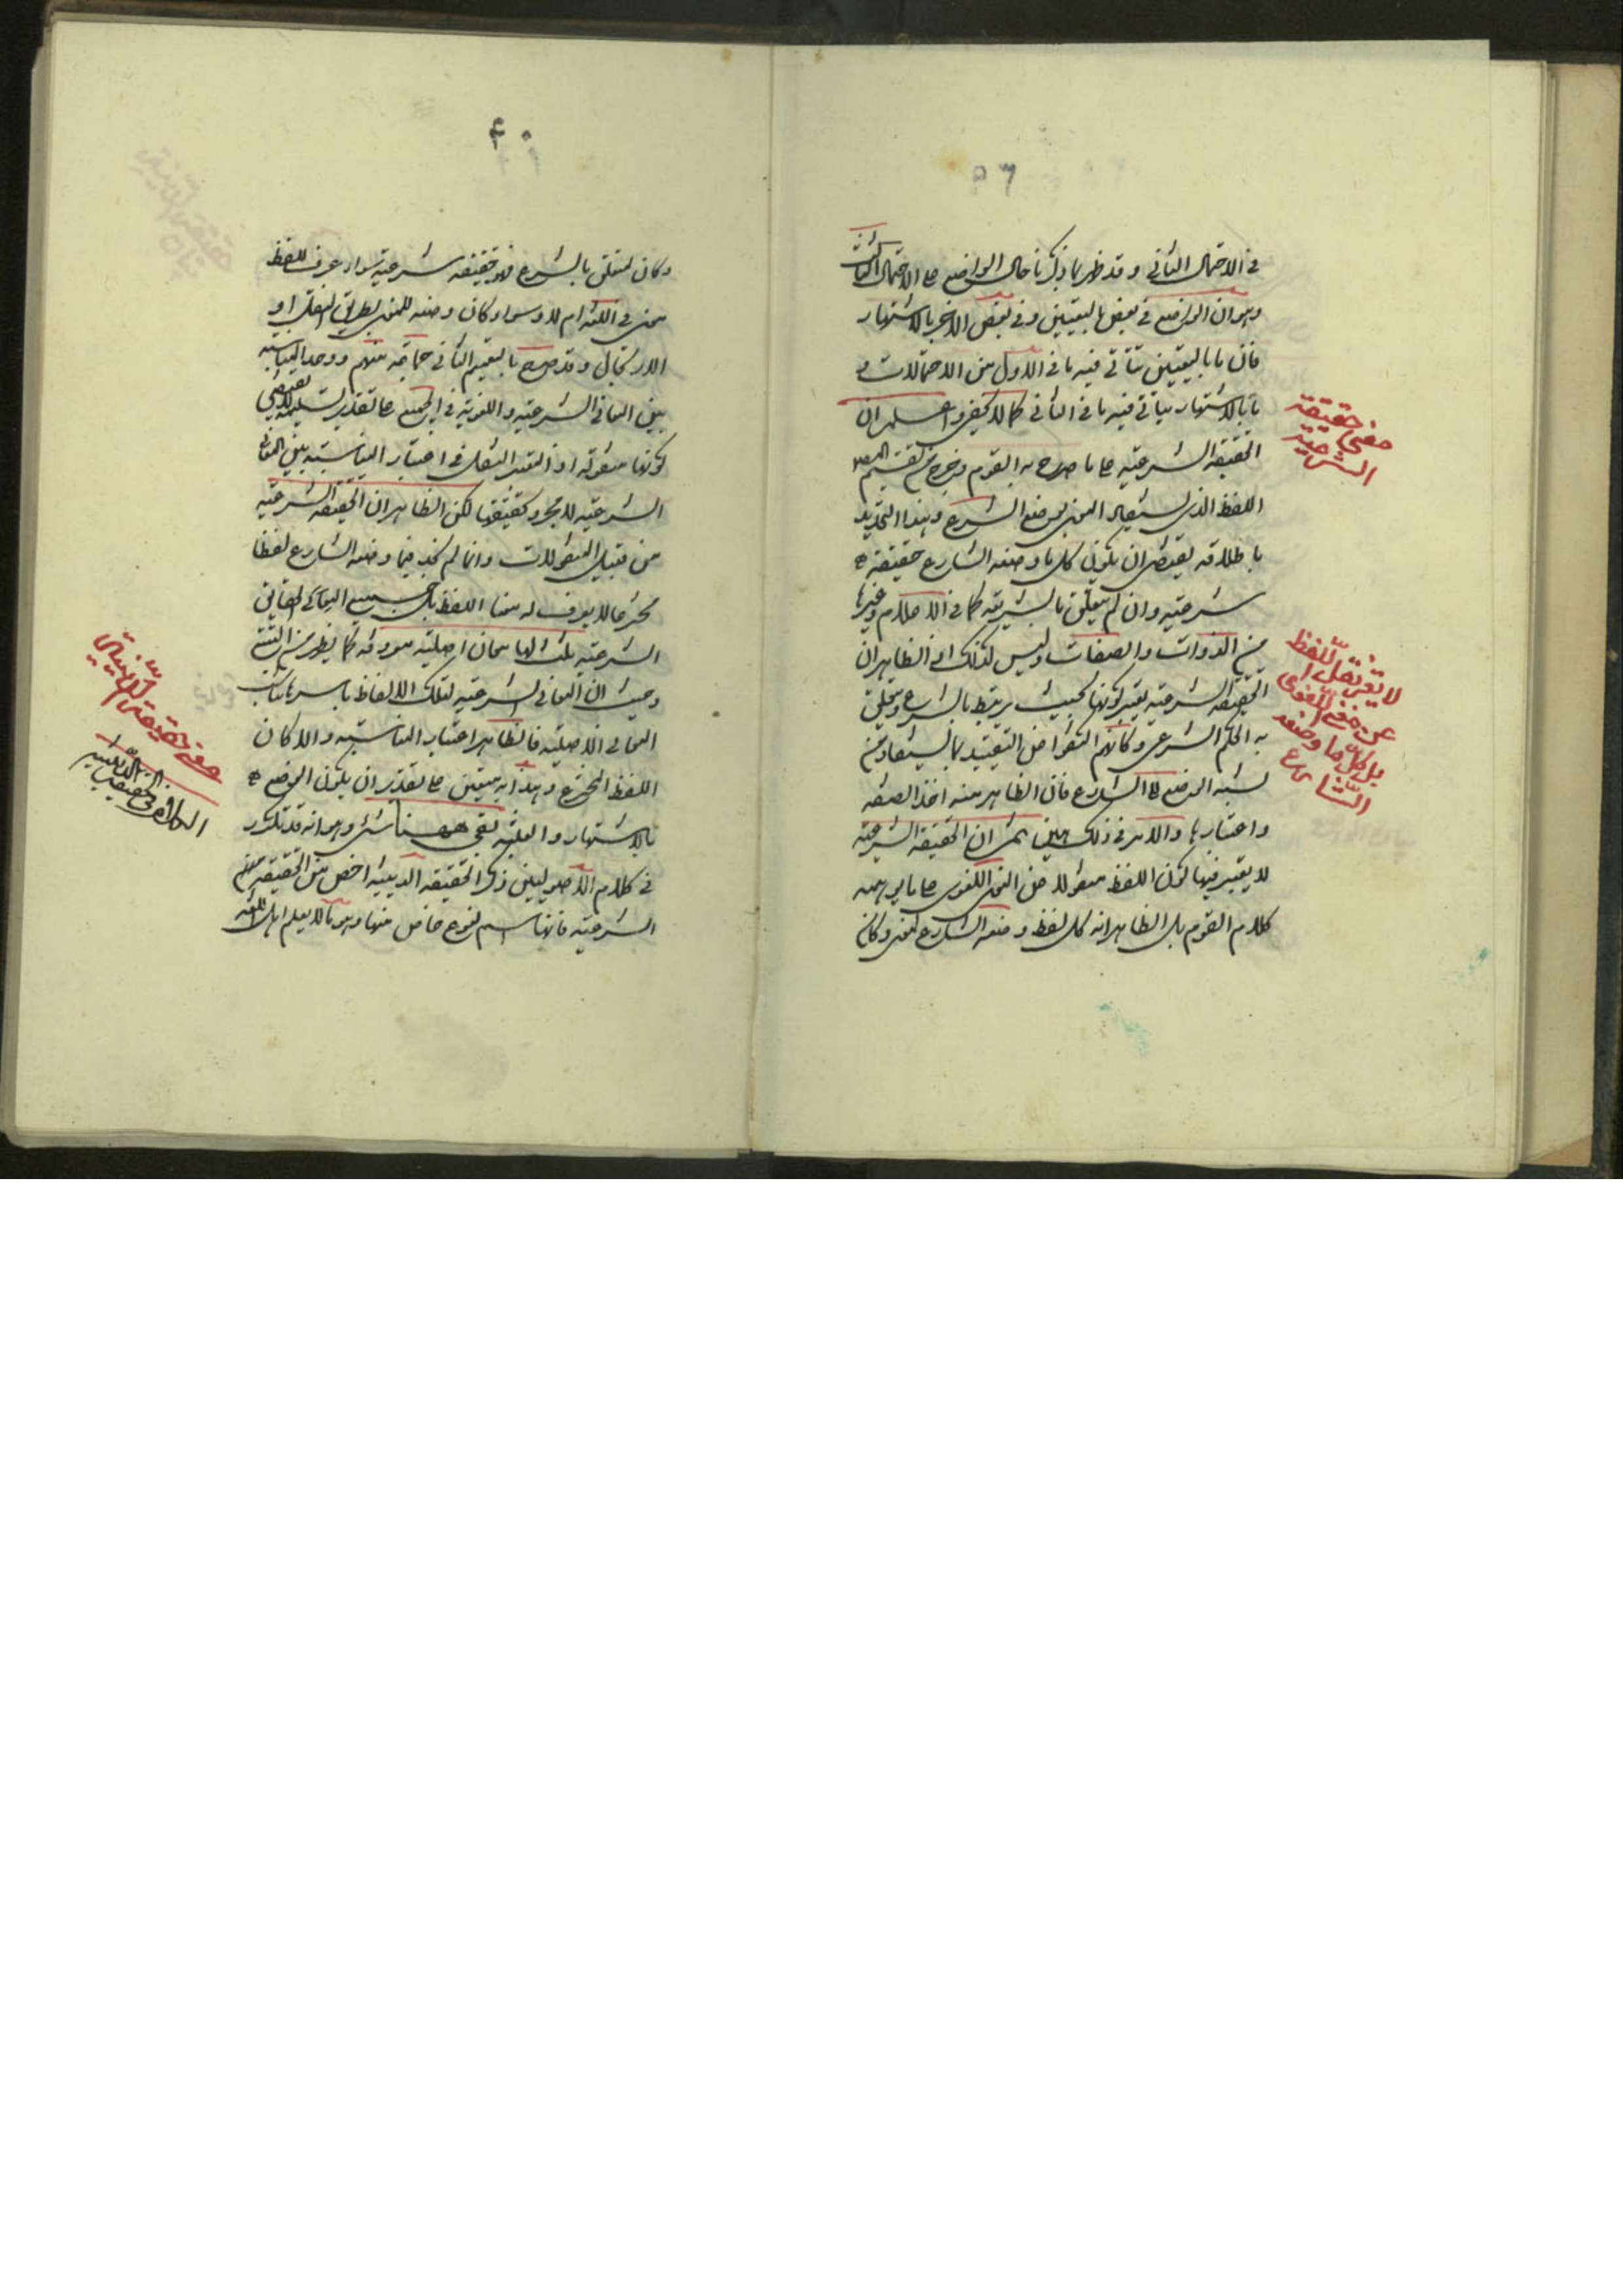 ٥٦
في الاحتمال الثاني وقد ظهر بما ذكرنا حال الوضع على الاحتمال الثالث
وهو ان الوضع في بعض بالتعيين وفي بعض الاخر بالاشتهار
فان ما بالتعيين يتاتى فيه ما في الاول من الاحتمالات و
ما بالاشتهار يتاتى فيه ما في الثاني كما لا يخفى واعلم ان
الحقيقة الشرعية على ما صرح به القوم وخرج من تقسيم المص
اللفظ الذي استفيد المعنى بوضع الشرع وهذا التحديد
باطلاقه يقتضي ان يكون كل ما وضعه الشارع حقيقة
شرعية وان لم يتعلق بالشريعة كما في الاعلام وغيرها
من الذوات والصفات وليس كذلك اذ الظاهر ان
الحقيقة الشرعية يعتبر كونها بحيث يرتبط بالشرع ويتعلق
به الحكم الشرعي وكانهم اكتفوا عن التقييد بما يستفاد من
نسبة الوضع الى الشارع فان الظاهر منه اخذ الصفة
واعتبارها والامر في ذلك هين ثم ان الحقيقة الشرعية
لا يعتبر فيها كون اللفظ منقولا عن المعنى اللغوي على ما يوهمه
كلام القوم بل الظاهر انه كل لفظ وضعه الشارع لمعنى وكان
معنى حقيقة
الشرعية
لا يعتبر نقل اللفظ
عن معنى اللغوي
بل كل ما وضعه
الشارع
٤٠
وكان لمتعلق بالشرع فهو حقيقة شرعية سواء عرف للفظ
معنى في اللغة ام لا وسواء كان وضعه للمعنى بطريق النقل او
الارتجال وقد صرح بالتعميم الثاني جماعة منهم ووجد المناسبة
بين المعاني الشرعية واللغوية في الجميع على تقدير تسليمه لا يقتضي
كونها منقولة اذ المعتبر النقل في اعتبار المناسبة بين المعاني
الشرعية لا مجرد تحققها لكن الظاهر ان الحقيقة الشرعية
من قبيل المنقولات وانما لم نجد فيما وضعه الشارع لفظا
مخترعا لا يعرف له معنا اللفظ بل جميع الحقائق
الشرعية يثبت لها معان اصلية معروفة كما يظهر من التتبع
وحيث ان المعاني الشرعية لتلك الالفاظ باسرها يناسب
المعاني الاصلية فالظاهر اعتبار المناسبة والا كان
اللفظ المخترع وهذا به يتعين على تقدير ان يكون الوضع
بالاشتهار والغلبة بقي ههنا شئ وهو انه قد تكرر
في كلام الاصوليين ذكر الحقيقة الدينية اخص من الحقيقة
الشرعية فانها اسم لنوع خاص منها وهو ما لا يعلم اهل اللغة
معنى حقيقة الدينية
الكلام في حقيقة الدينية